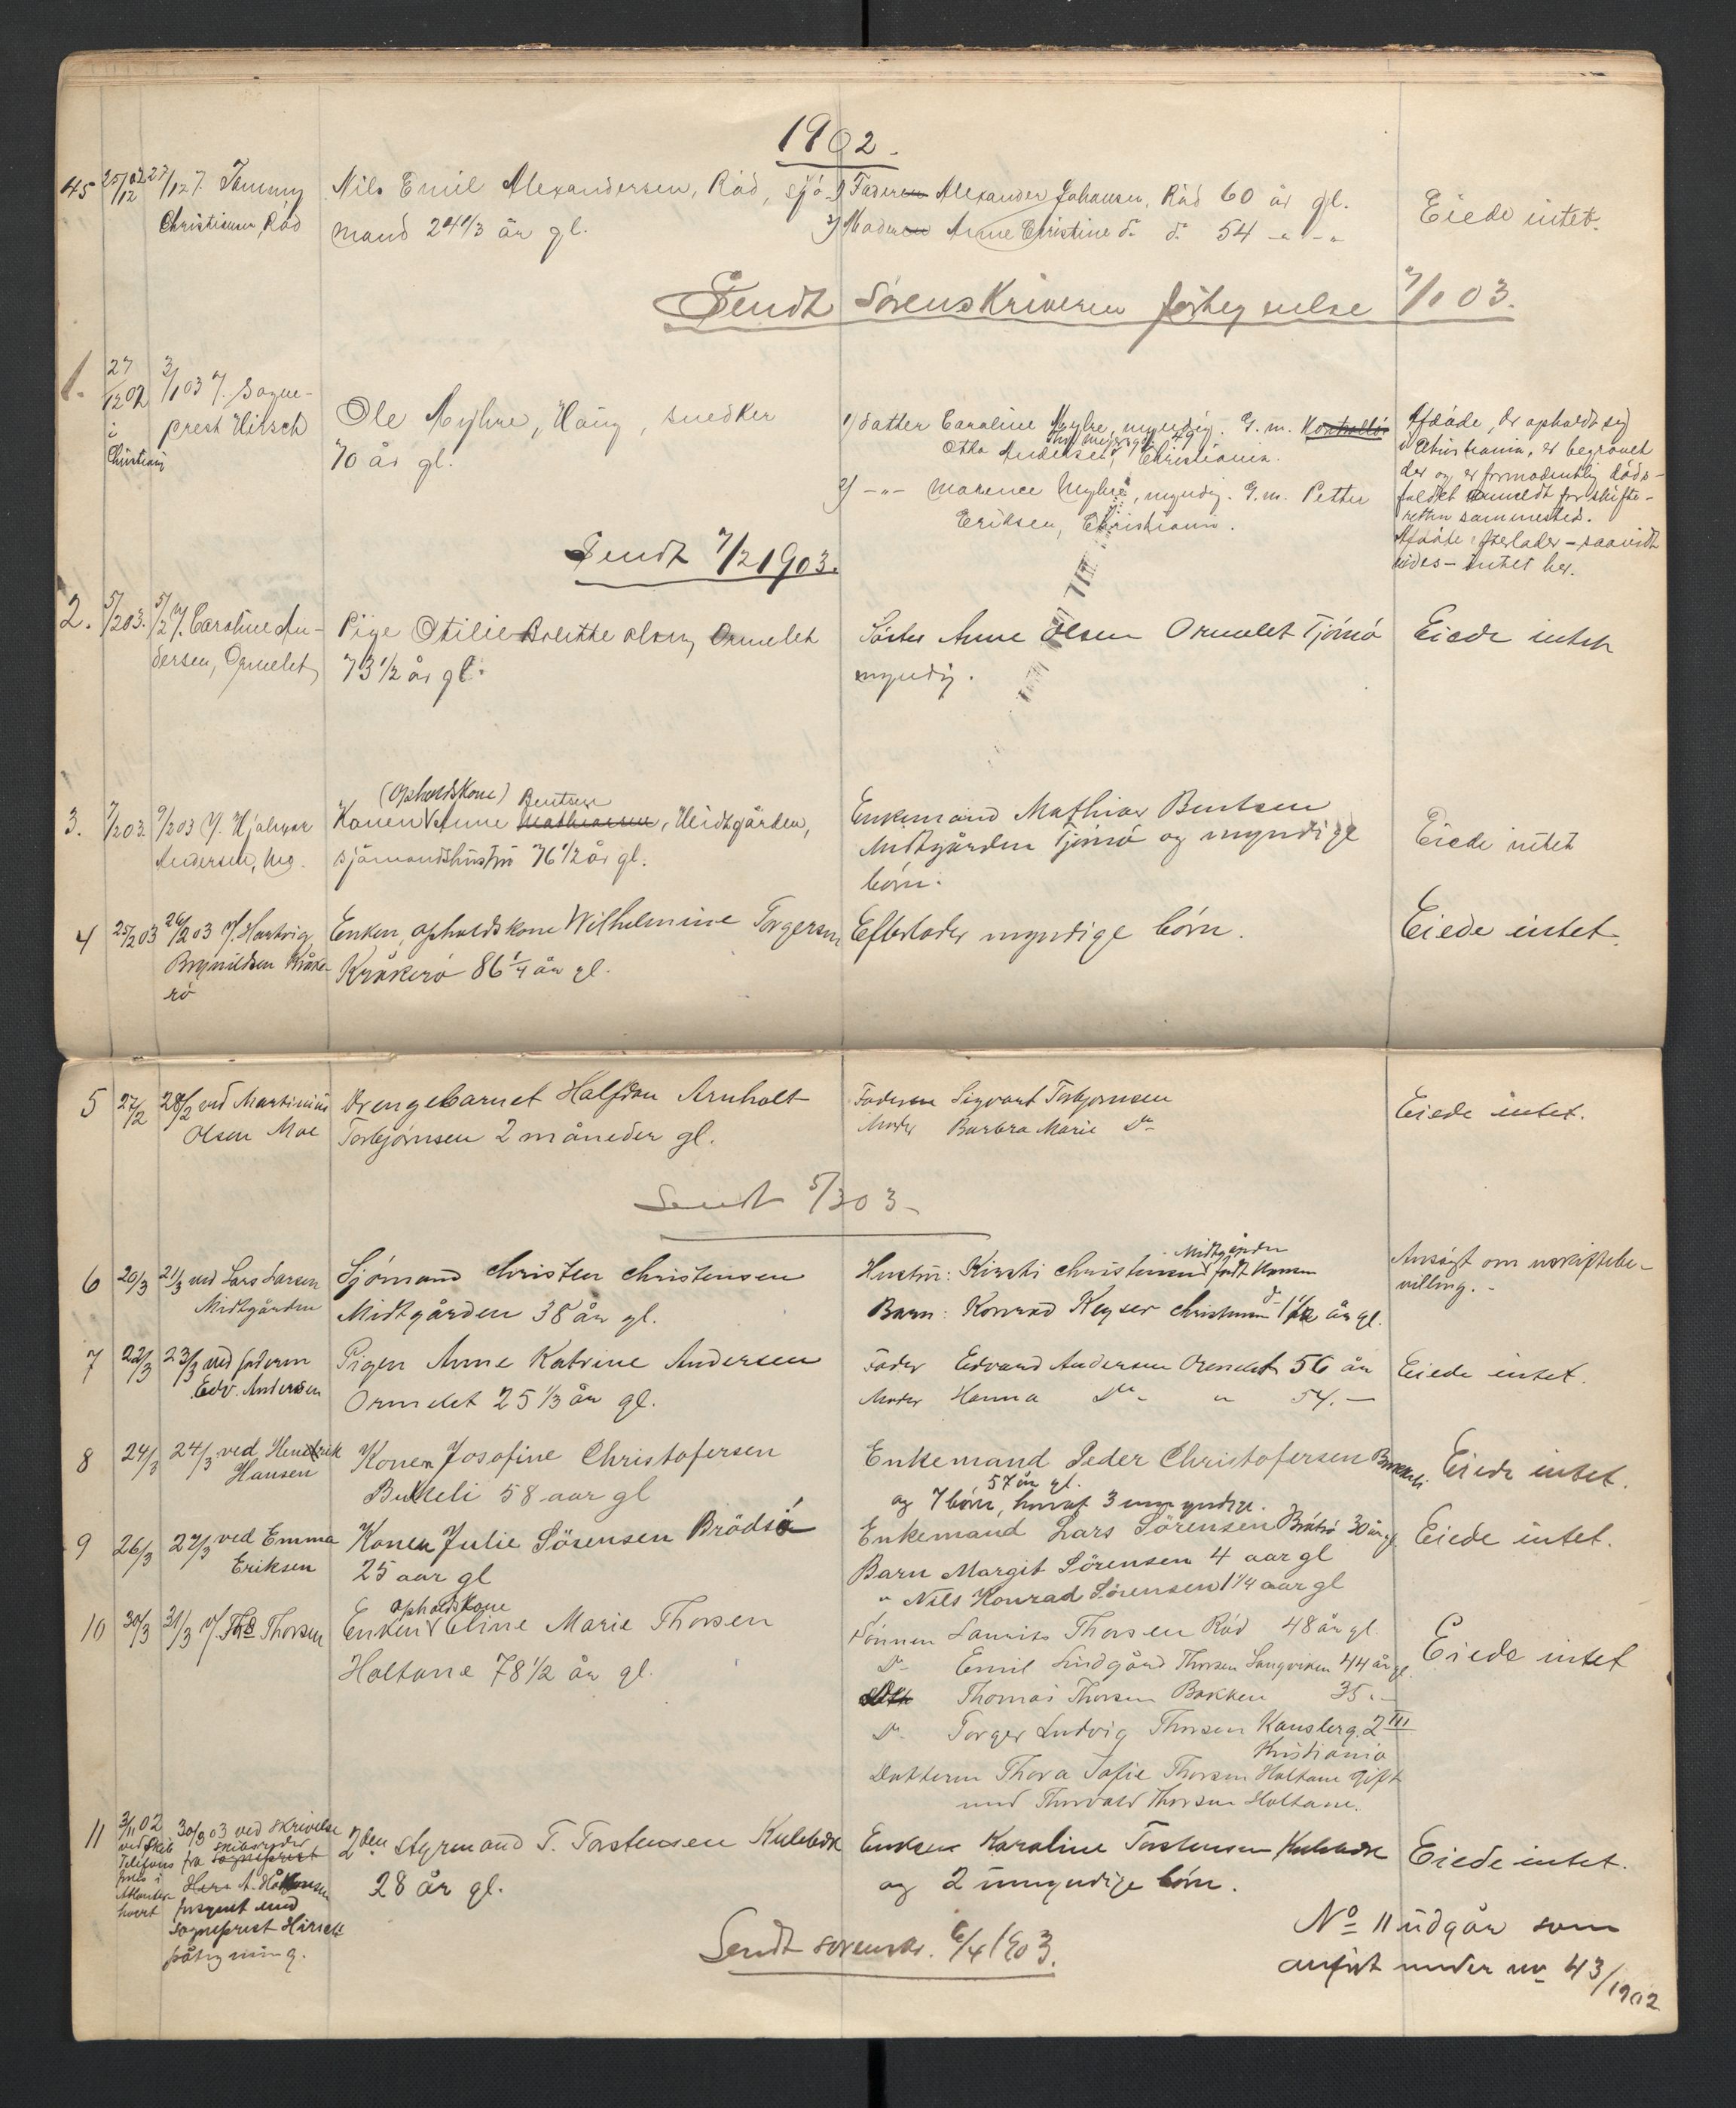 1902.
45 25/12 02 27/12 v. Tommy Nils Emil Alexandersen, Röd, sjö- 1) Faderen Alexander Johansen, Röd 60 år gl. Eiede intet.
Christiansen, Röd mand 24 1/3 år gl. 2) Moderen Anne Christine do do 54 - " - "
Sendt Sörenskriveren fortegnelse 7/1 03.
1. 27/12 02 3/1 03 v. Sogne- Ole Myhre, Haug, snedker 1) Datter Caroline Myhre, myndig. G. m. Kontrollör Afdöde, der opholdt sig
i prest Hirsch 70 år gl. Otto Andersen, Christiania. i Christiania, er begravet
Christiania 2) - " - Marence Myhre, myndig. G. m. Petter der og er formodentlig döds-
Eriksen, Christiania. faldet anmeldt for skifte-
retten sammesteds.
Afdöde efterlader - saavidt
vides - intet her.
Sendt 7/2 1903.
2. 5/2 03. 5/2 v. Caroline An- Pige Otilie Bolette Olsen, Ormelet Söster Anne Olsen Ormelet Tjömö Eiede intet
dersen, Ormelet 73 1/2 år gl. myndig.
(Opholdskone) Bentsen
3. 7/2 03. 9/2 03 v. Hjalmar Konen Anne Mathiasen, Midtgården, Enkemand Mathias Bentsen Eiede intet
Andersen, Mo. sjömandshustru 76 1/2 år gl. Midtgården Tjömö og myndige
börn.
4 25/2 03 26/2 03 v. Hartvig Enken, opholdskone Wilhelmine Torgersen Efterlader myndige börn. Eiede intet.
Brynildsen Kråke- Kråkerö 86 1/4 år gl.
rö
5 27/2 28/2 ved Martinius Drengebarnet Halfdan Arnholt Faderen Sigvart Torbjørnsen Eiede intet.
Olsen Moe Torbjørnsen 2 måneder gl. Moder Barbra Marie Do
Sendt 5/3 03.
6 20/3 21/3 ved Lars Larsen Sjømand Christen Christensen Hustru: Kirsti Christensen Midtgården født Hansen Ansögt om uskiftebe-
Midtgården Midtgården 38 år gl. Barn: Konrad Keyser Christensen do 1 1/2 år gl. villing.
7 22/3 23/3 ved faderen Pigen Anne Katrine Andersen Fader Edvard Andersen Ormelet 56 år Eiede intet.
Edv. Andersen Ormelet 25 1/3 år gl. Moder Hanna Do " 54. -
8 24/3 24/3 ved Hendrik Konen Josofine Christofersen Enkemand Peder Christofersen Bukkeli Eiede intet.
Hansen Bukkeli 58 aar gl 57 år gl.
og 7 börn, hvoraf 3 umyndige.
9 26/3 27/3 ved Emma Konen Julie Sörensen Brödsö Enkemand Lars Sörensen Brötsö 30 år gl Eiede intet.
Eriksen 25 aar gl Barn Margit Sörensen 4 aar gl
" Nils Konrad Sörensen 1 1/4 aar gl
opholdskone
10 30/3 31/3 v. Ths Thorsen Enken Eline Marie Thorsen Sönnen Laurits Thorsen Röd 48 år gl. Eiede intet
Holtane 78 1/2 år gl. Do Emil Lindgård Thorsen Langviken 44 år gl.
Thomas Thorsen Bakken 35. -
Do Torger Ludvig Thorsen Kanslerg. 2 III
Kristiania
Datteren Thora Sofie Thorsen Holtane gift
med Thorvald Thorsen Holtane.
11 3/11 02 30/3 03 ved skrivelse 2den styrmand T. Torstensen Kulebæk Enken Karoline Torstensen Kulebæk Eiede intet.
ved skib fra skibsreder sogneprest 28 år gl. og 2 umyndige börn.
Telefons
i Herr A. Håkonsen
Atlanter forsynet med
havet sogneprest Hirschs
påtegning.
Sendt sorenskr. 6/4 1903.
No 11 udgår som
anført under no 43/1902